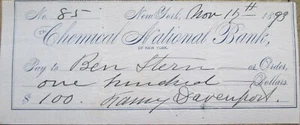 No. 85 New York, Nov 15th 1893
Chemical National Bank,
OF NEW YORK.
Pay to Ben Stern or Order,
one hundred Dollars
$100. Fanny Davenport.